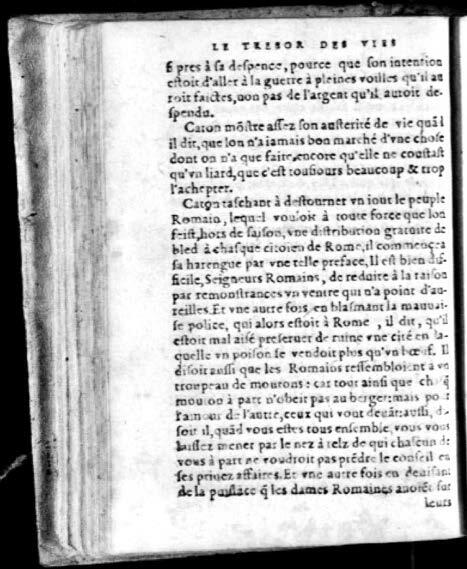 LE TRESOR DES VIES
& pres à sa despence, pource que son intention
estoit d'aller à la guerre à pleines voilles qu'il au
roit faictes, non pas de l'argent qu'il auroit de-
spendu.
Caton mõstre assez son austerité de vie quãd
il dit, que lon n'a iamais bon marché d'vne chose
dont on n'a que faire, encore qu'elle ne coustast
qu'vn liard, que c'est tousiours beaucoup & trop
l'achepter.
Caton taschant à destourner vn iour le peuple
Romain, lequel vouloit à toute force que lon
feist, hors de saison, vne distribution gratuite de
bled à chasque citoien de Rome, il commença
sa harengue par vne telle preface, Il est bien dif-
ficile, Seigneurs Romains, de reduire à la raison
par remonstrances vn ventre qui n'a point d'au-
reilles. Et vne autre fois, en blasmant la mauuai-
se police, qui alors estoit à Rome, il dit, qu'il
estoit mal aisé preseruer de ruine vne cité en la-
quelle vn poison se vendoit plus qu'vn bœuf. Il
disoit aussi que les Romains ressembloient a vn
troupeau de moutons: car tout ainsi que chaq̃
mouton à part n'obeit pas au berger: mais pour
l'amour de l'autre, ceux qui vont deuãt: aussi, di-
soit il, quãd vous estes tous ensemble, vous vous
laissez mener par le nez à telz de qui chascun de
vous à part ne voudroit pas prẽdre le conseil en
ses priuez affaires. Et vne autre fois en deuisant
de la puissace q̃ les dames Romaines auoiẽt sur
leurs